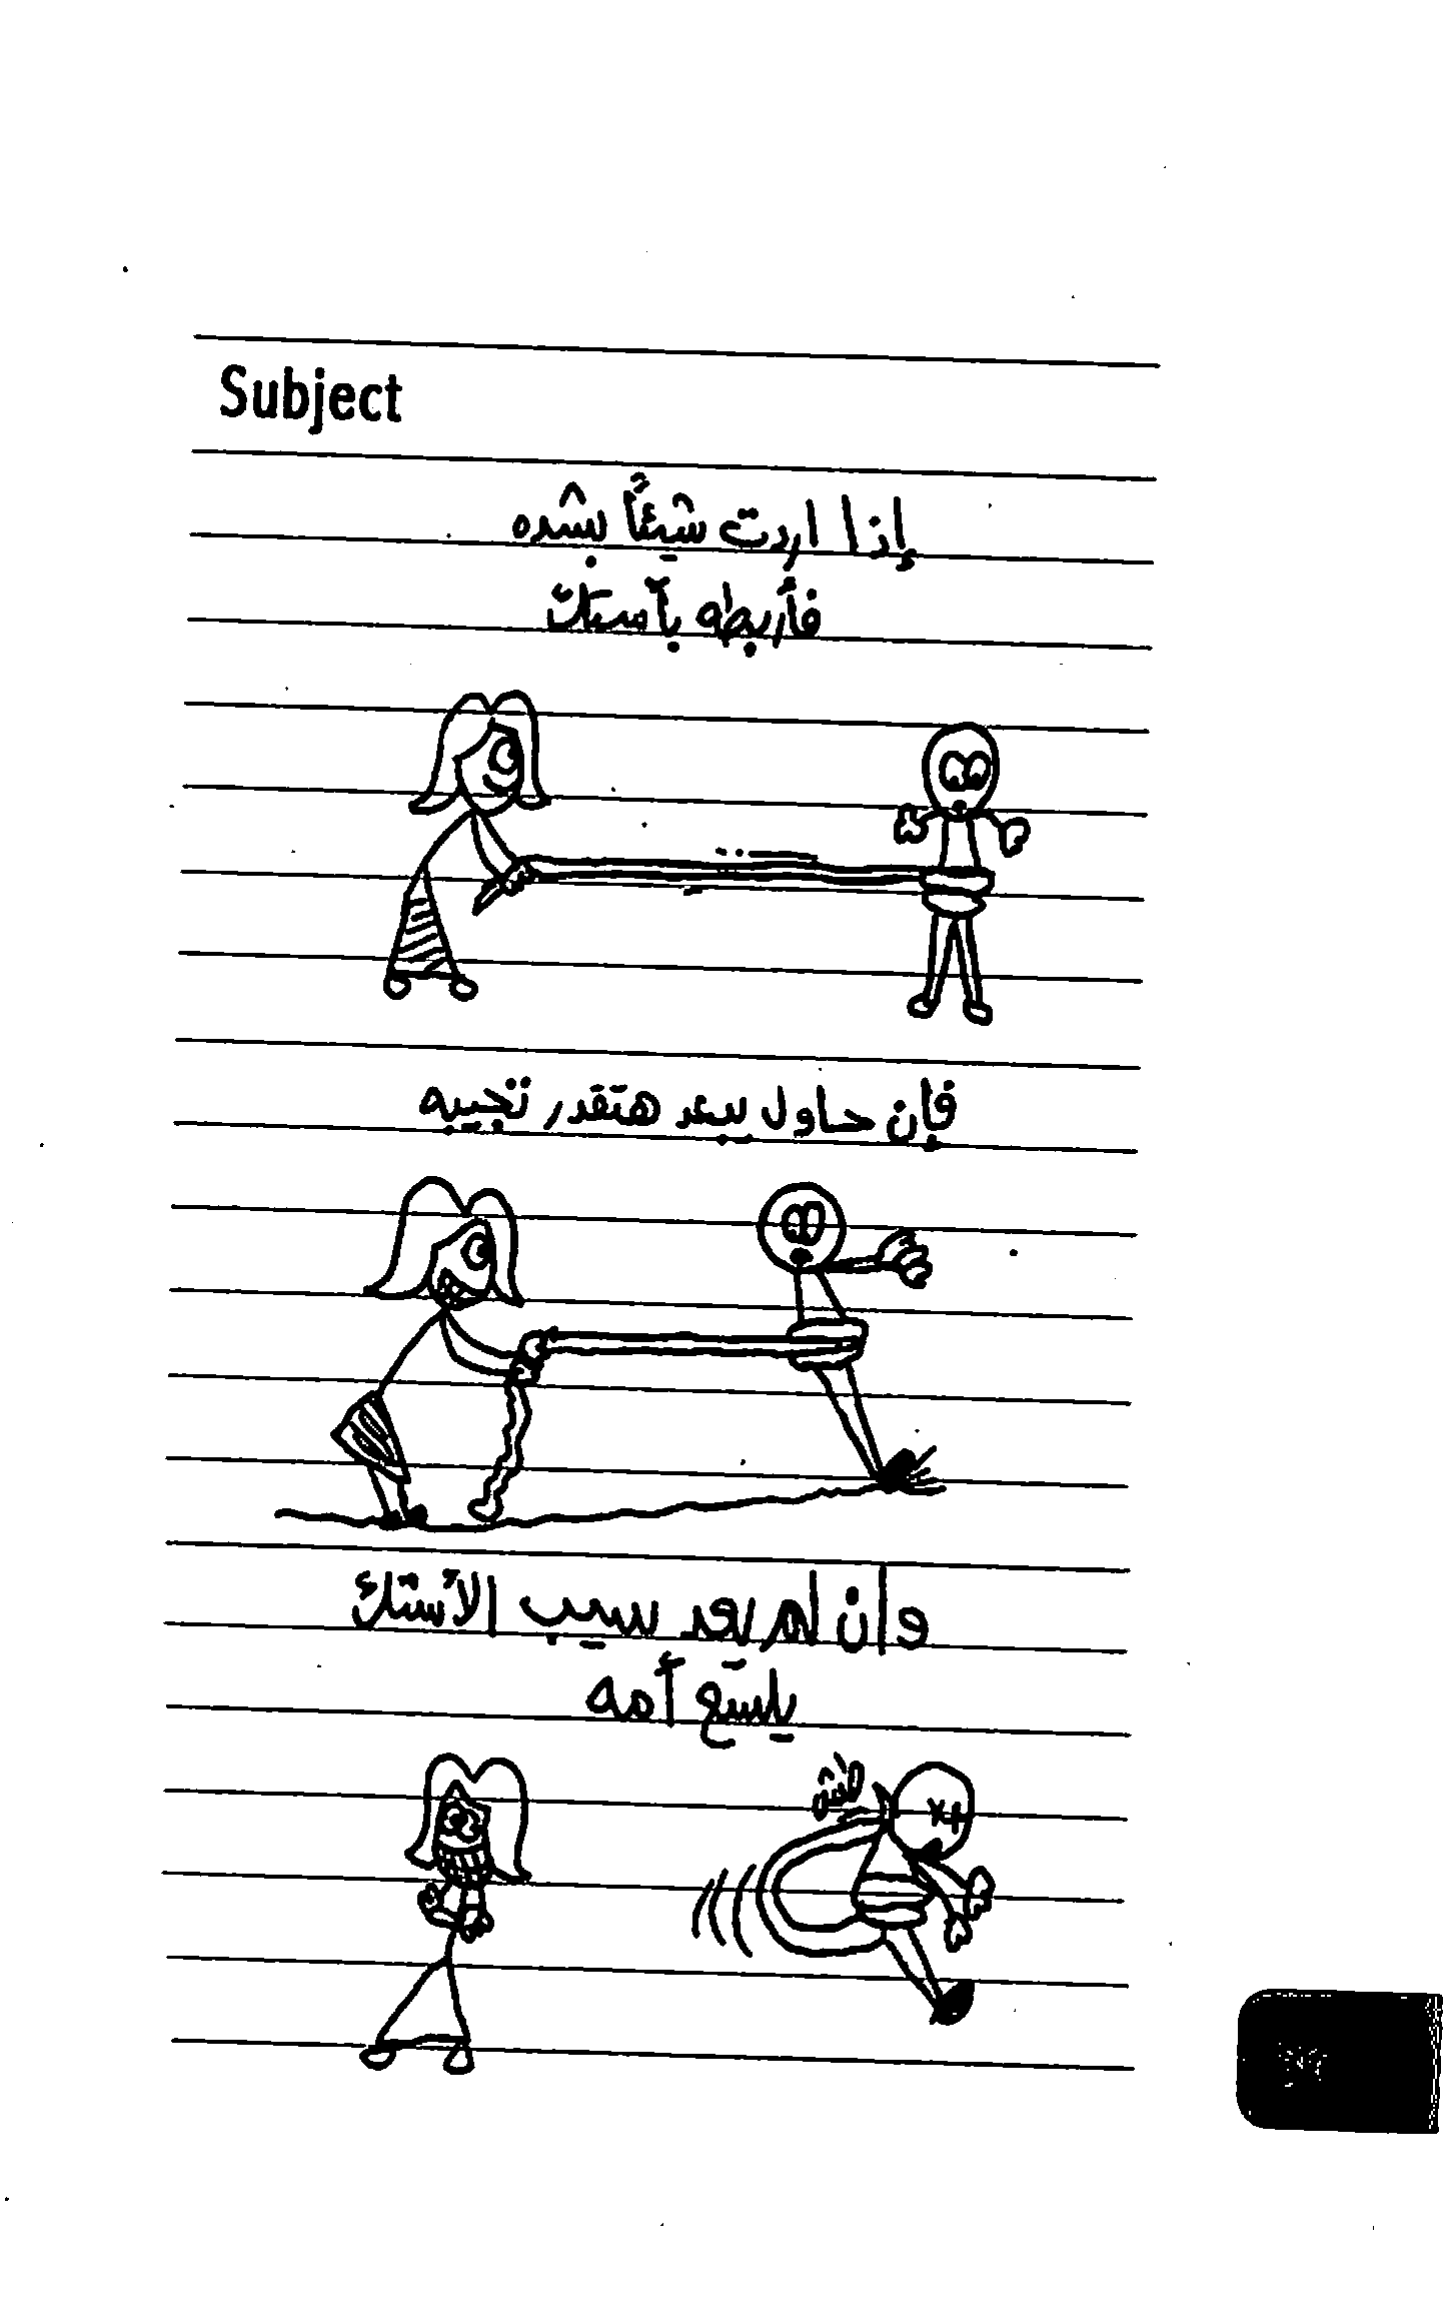 Subject
إذا اردت شيئاً بشده
فأربطه بآستك
فإن حاول يبعد هتقدر تجيبه
وإن لم يعد سيب الأستك
يلسع آمه
طش